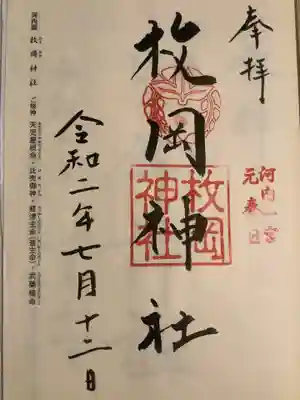 奉拝
河内一宮
元春日
枚岡神社
枚岡
神社
令和二年七月十二日
河内国 枚岡神社 ご祭神 天児屋根命・比売御神・経津主命(斎主命)・武甕槌命